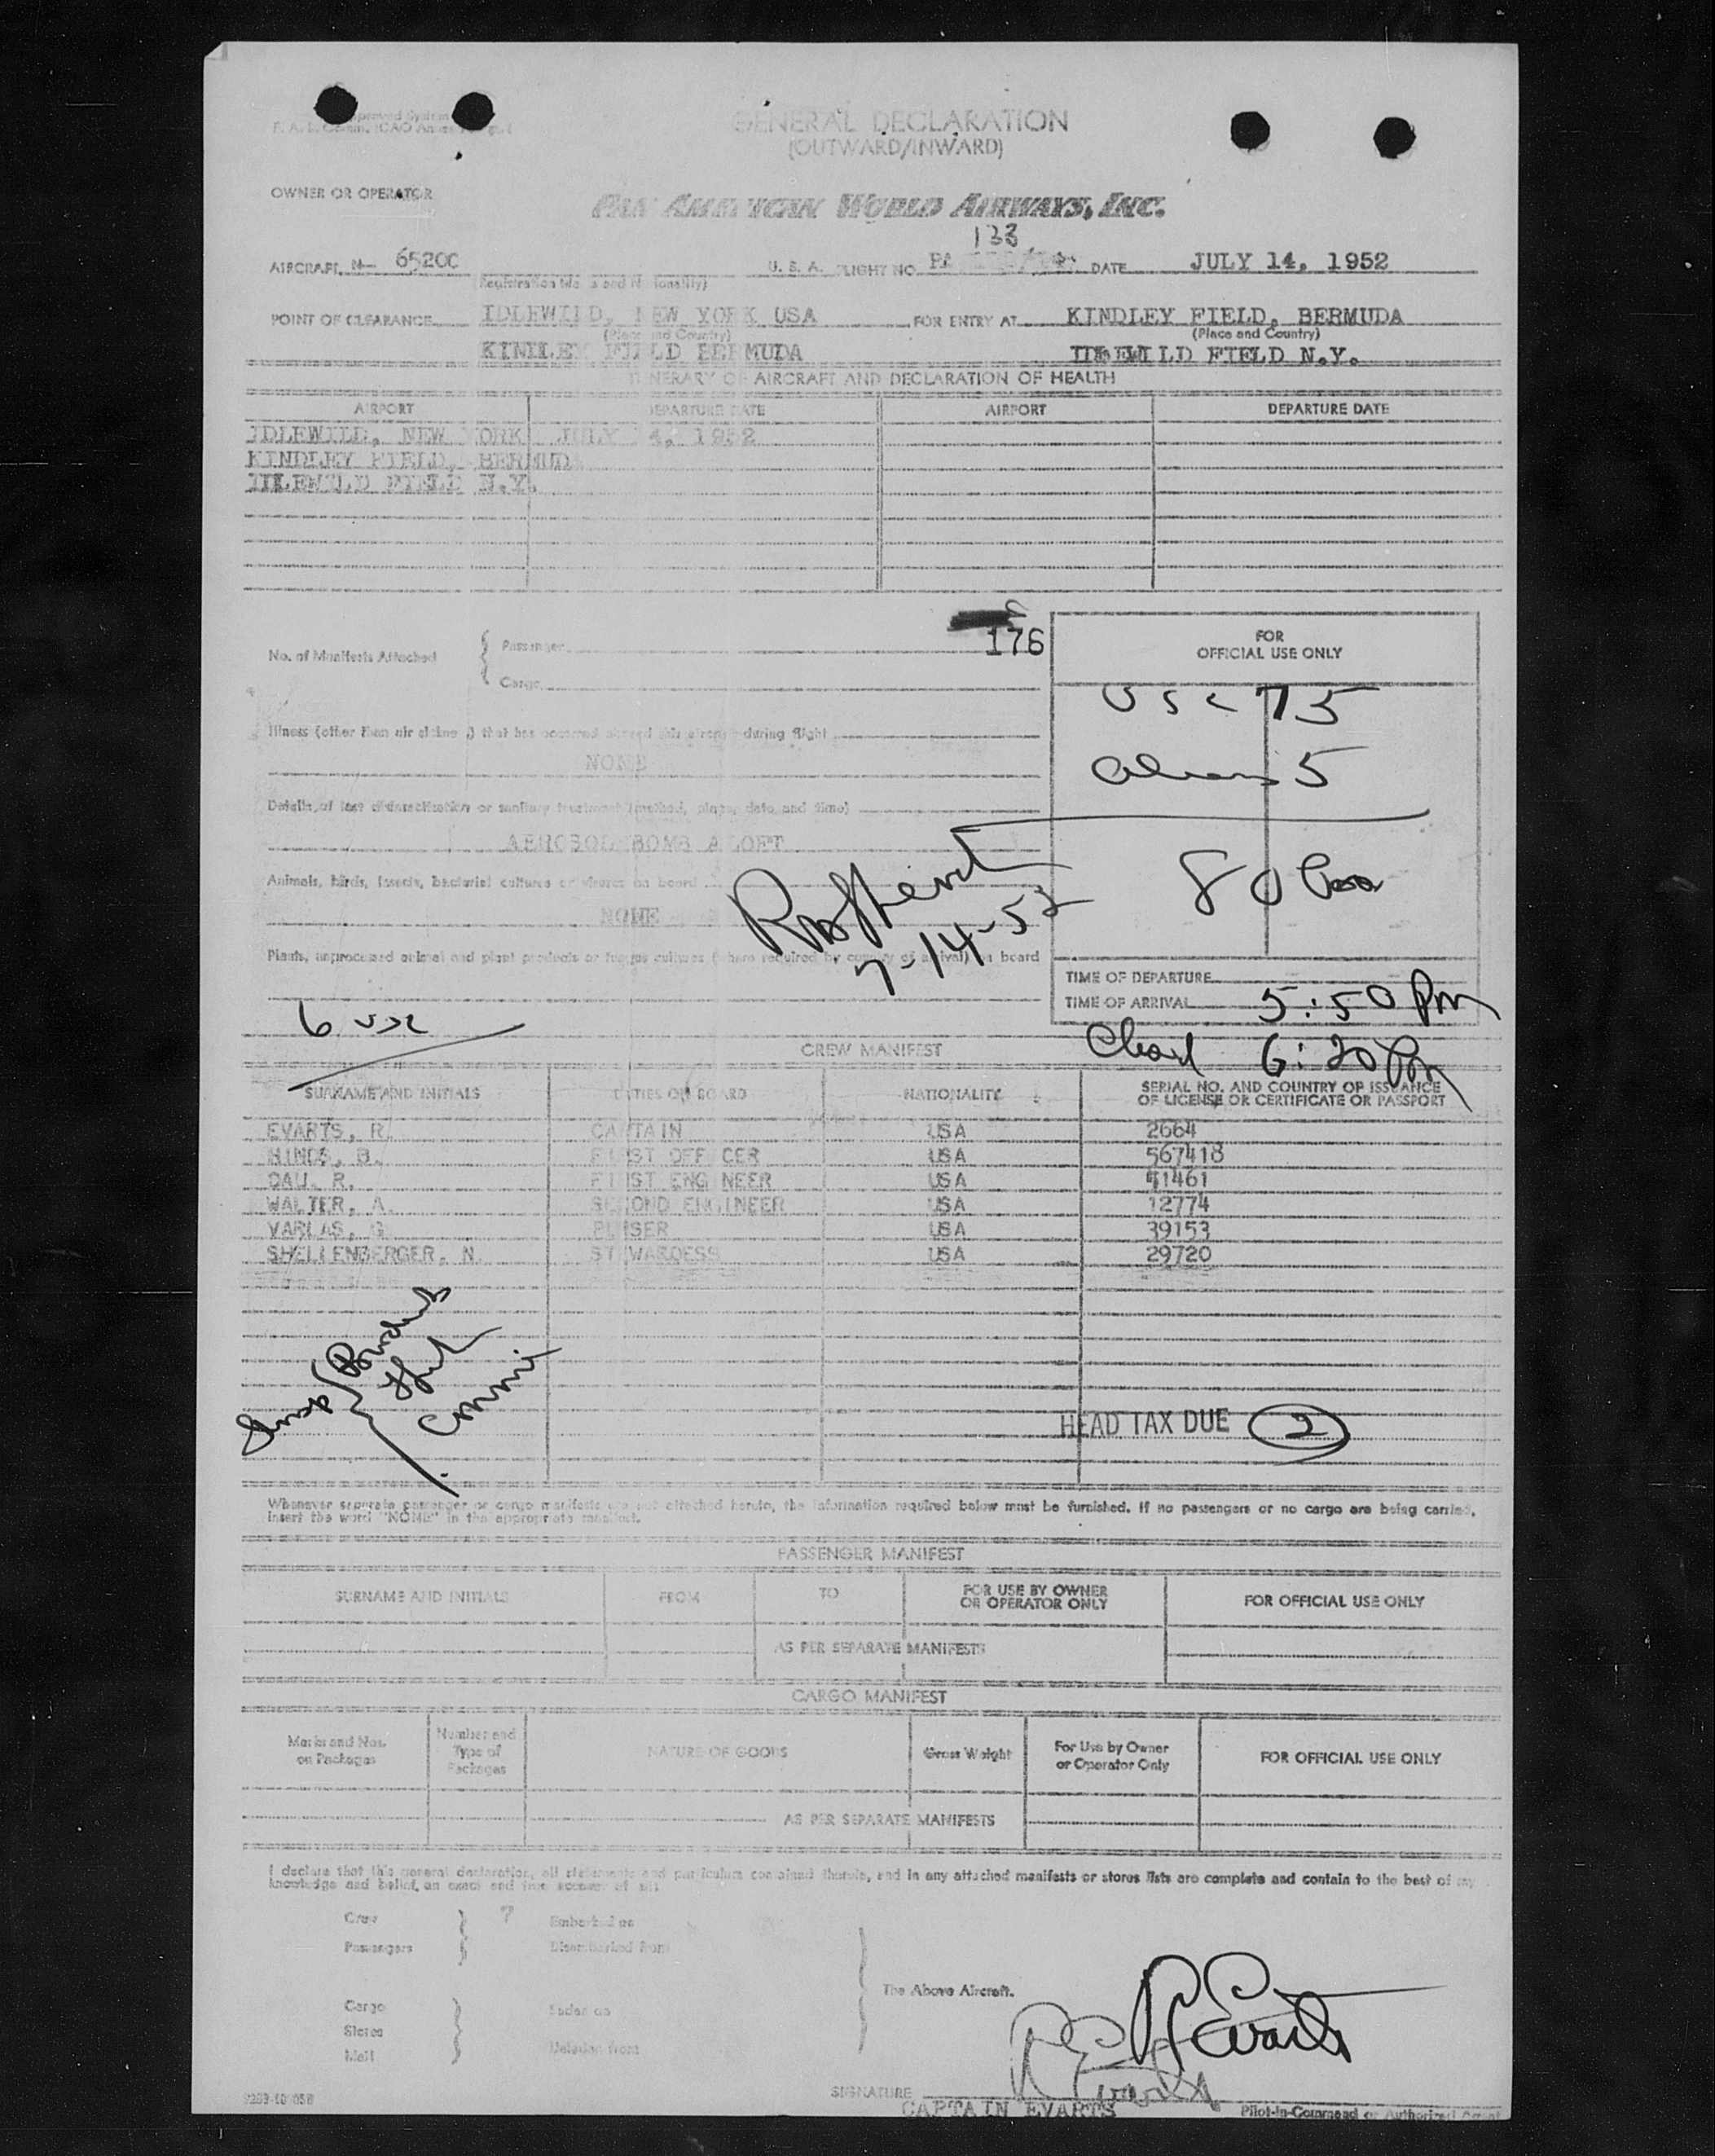 GENERAL DECLARATION
(OUTWARD/INWARD)
OWNER OR OPERATOR
PAN AMERICAN WORLD AIRWAYS, INC.
133
AIRCRAFT N- 6520C U. S. A. FLIGHT NO. PA DATE JULY 14, 1952
(Registration Marks and Nationality)
POINT OF CLEARANCE IDLEWILD, NEW YORK USA FOR ENTRY AT KINDLEY FIELD, BERMUDA
(Place and Country) (Place and Country)
KINDLEY FIELD BERMUDA IDLEWILD FIELD N.Y.
ITINERARY OF AIRCRAFT AND DECLARATION OF HEALTH
AIRPORT DEPARTURE DATE AIRPORT DEPARTURE DATE
IDLEWILD, NEW YORK JULY 14, 1952
KINDLEY FIELD, BERMUDA
IDLEWILD FIELD N.Y.
176
No. of Manifests Attached { Passenger
Cargo
FOR
OFFICIAL USE ONLY
USC 75
Aliens 5
80
Illness (other than air sickness) that has occurred aboard this aircraft during flight
NONE
Details of last disinsectisation or sanitary treatment (method, place, date and time)
AEROSOL BOMB ALOFT
Animals, birds, insects, bacterial cultures or viruses on board
NONE
7-14-52
Plants, unprocessed animal and plant products or fungus cultures (where required by country of arrival) on board
TIME OF DEPARTURE
TIME OF ARRIVAL 5:50 PM
6 usc
6:20 PM
CREW MANIFEST
SURNAME AND INITIALS DUTIES ON BOARD NATIONALITY SERIAL NO. AND COUNTRY OF ISSUANCE
OF LICENSE OR CERTIFICATE OR PASSPORT
EVARTS, R. CAPTAIN USA 2664
HINDS, B. FIRST OFFICER USA 567418
CAU, R. FIRST ENGINEER USA 41461
WALTER, A. SECOND ENGINEER USA 12774
VARLAS, G. PURSER USA 39153
SHELLENBERGER, N. STEWARDESS USA 29720
HEAD TAX DUE 2
Whenever separate passenger or cargo manifests are not attached hereto, the information required below must be furnished. If no passengers or no cargo are being carried,
insert the word "NONE" in the appropriate manifest.
PASSENGER MANIFEST
SURNAME AND INITIALS FROM TO FOR USE BY OWNER
OR OPERATOR ONLY FOR OFFICIAL USE ONLY
AS PER SEPARATE MANIFESTS
CARGO MANIFEST
Marks and Nos.
on Packages
Number and
Type of
Packages
NATURE OF GOODS Gross Weight For Use by Owner
or Operator Only FOR OFFICIAL USE ONLY
AS PER SEPARATE MANIFESTS
I declare that this general declaration, all statements and particulars contained therein, and in any attached manifests or stores lists are complete and contain to the best of my
knowledge and belief, an exact and true account of all
Crew 7 Embarked on
Passengers Disembarked from
The Above Aircraft.
Cargo Laden on
Stores
Mail Unladen from
R Evarts
R Evarts
SIGNATURE
CAPTAIN EVARTS Pilot-in-Command or Authorized Agent